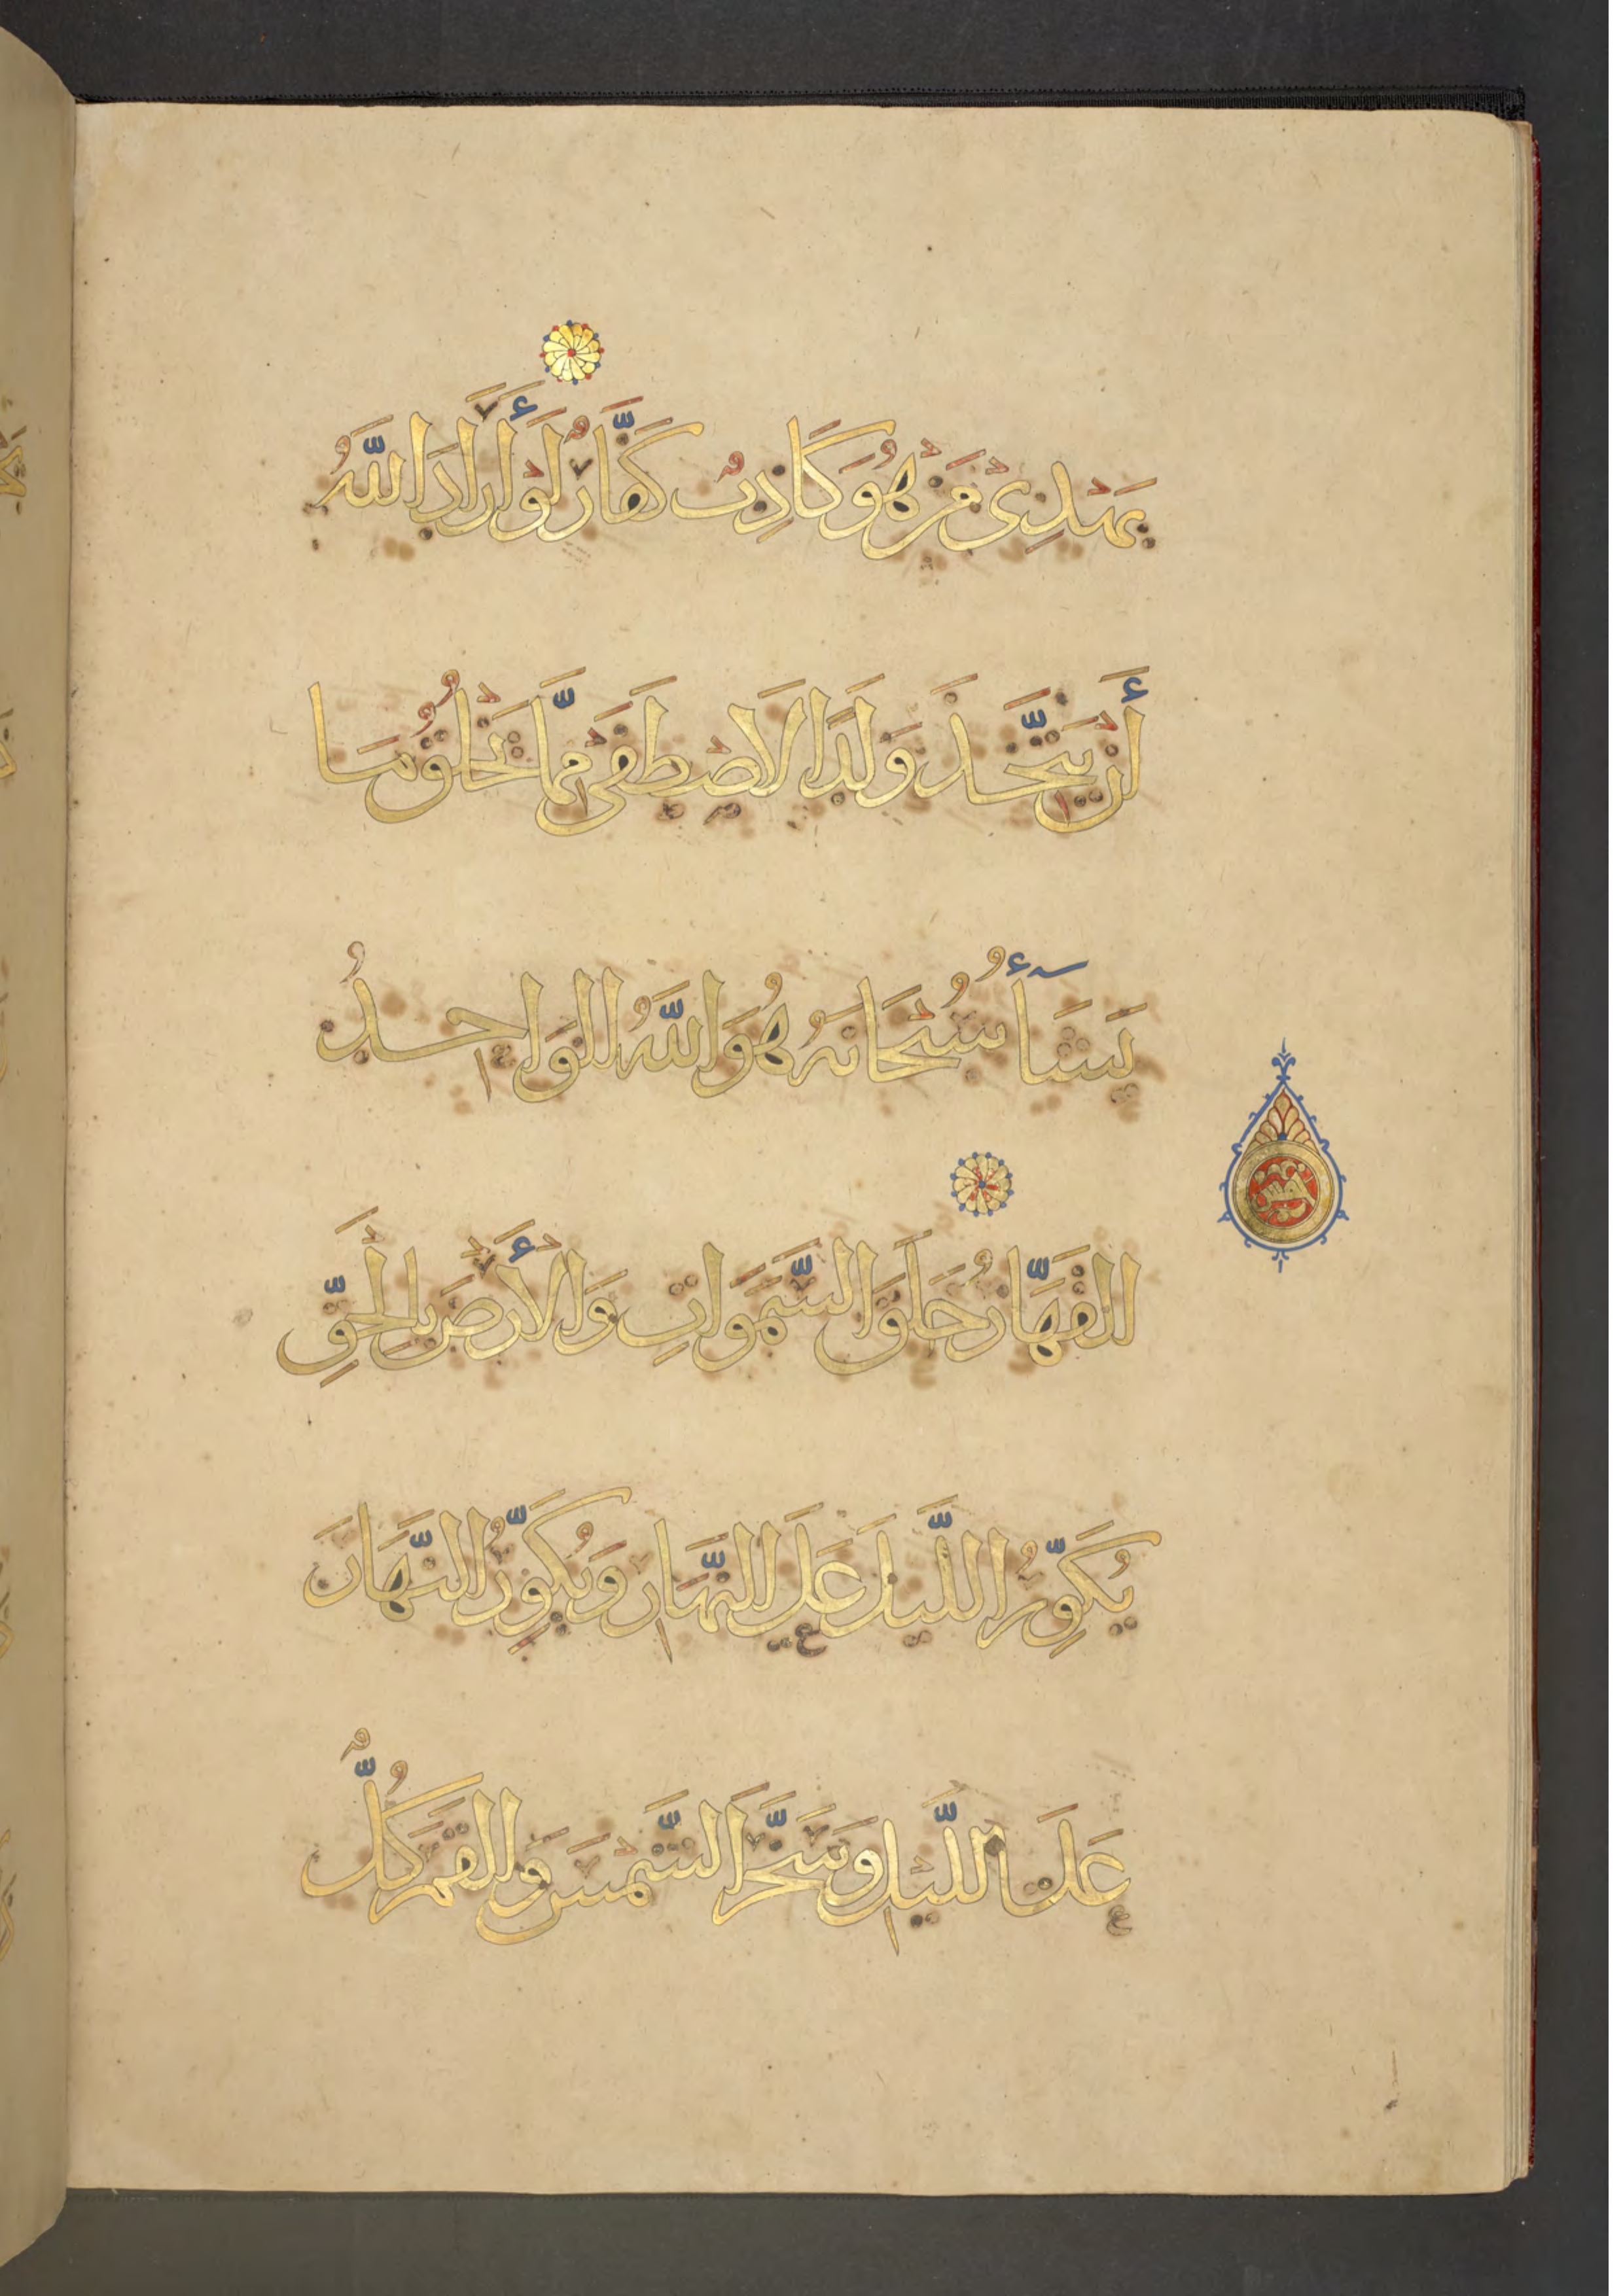 يَهْدِي مَنْ هُوَ كَاذِبٌ كَفَّارٌ لَوْ أَرَادَ اللَّهُ
أَنْ يَتَّخِذَ وَلَدًا لَاصْطَفَى مِمَّا يَخْلُقُ مَا
يَشَآءُ سُبْحَانَهُ هُوَ اللَّهُ الْوَاحِدُ
الْقَهَّارُ خَلَقَ السَّمَوَاتِ وَالْأَرْضَ بِالْحَقِّ
يُكَوِّرُ اللَّيْلَ عَلَى النَّهَارِ وَيُكَوِّرُ النَّهَارَ
عَلَى اللَّيْلِ وَسَخَّرَ الشَّمْسَ وَالْقَمَرَ كُلٌّ